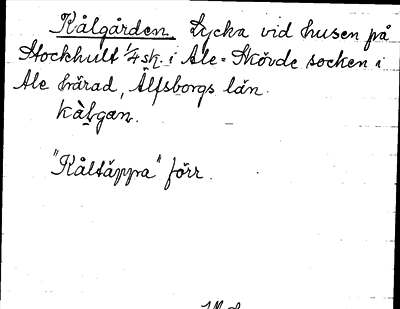 Kålgården. Lycka vid husen på
Stockhult 1/4 sk. i Ale-Skövde socken i
Ale härad, Älfsborgs län.
kàlgan.
"Kåltäppa" förr.